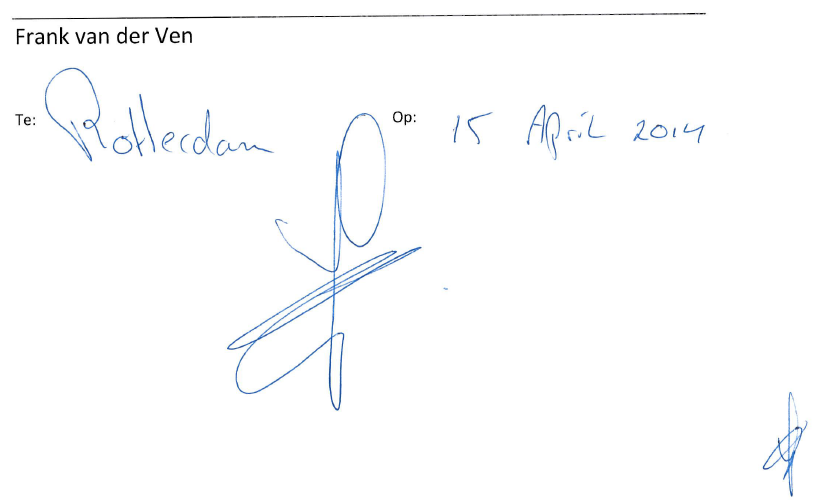 Frank van der Ven
Te: Rotterdam Op: 15 April 2014